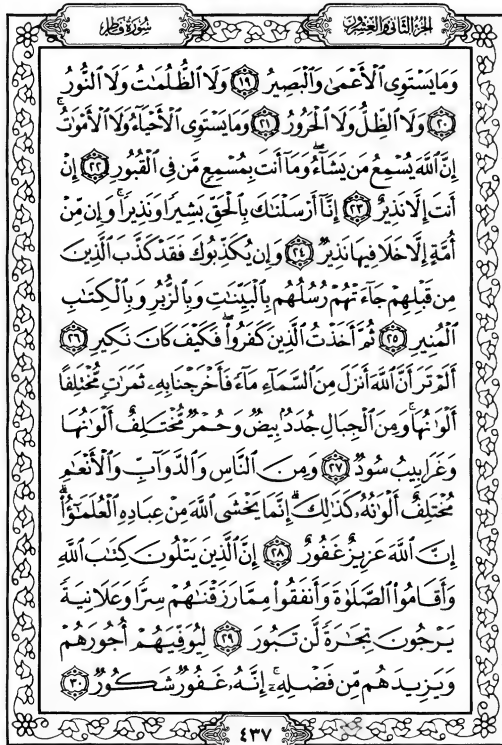 سُورَةُ فَاطِرٍ الجُزْءُ الثَّانِي وَالعِشْرُونَ
وَمَا يَسْتَوِى ٱلْأَعْمَىٰ وَٱلْبَصِيرُ ١٩ وَلَا ٱلظُّلُمَٰتُ وَلَا ٱلنُّورُ
٢٠ وَلَا ٱلظِّلُّ وَلَا ٱلْحَرُورُ ٢١ وَمَا يَسْتَوِى ٱلْأَحْيَآءُ وَلَا ٱلْأَمْوَٰتُۚ
إِنَّ ٱللَّهَ يُسْمِعُ مَن يَشَآءُۖ وَمَآ أَنتَ بِمُسْمِعٍ مَّن فِى ٱلْقُبُورِ ٢٢ إِنْ
أَنتَ إِلَّا نَذِيرٌ ٢٣ إِنَّآ أَرْسَلْنَٰكَ بِٱلْحَقِّ بَشِيرًا وَنَذِيرًاۚ وَإِن مِّنْ
أُمَّةٍ إِلَّا خَلَا فِيهَا نَذِيرٌ ٢٤ وَإِن يُكَذِّبُوكَ فَقَدْ كَذَّبَ ٱلَّذِينَ
مِن قَبْلِهِمْ جَآءَتْهُمْ رُسُلُهُم بِٱلْبَيِّنَٰتِ وَبِٱلزُّبُرِ وَبِٱلْكِتَٰبِ
ٱلْمُنِيرِ ٢٥ ثُمَّ أَخَذْتُ ٱلَّذِينَ كَفَرُوا۟ۖ فَكَيْفَ كَانَ نَكِيرِ ٢٦
أَلَمْ تَرَ أَنَّ ٱللَّهَ أَنزَلَ مِنَ ٱلسَّمَآءِ مَآءً فَأَخْرَجْنَا بِهِۦ ثَمَرَٰتٍ مُّخْتَلِفًا
أَلْوَٰنُهَاۚ وَمِنَ ٱلْجِبَالِ جُدَدٌۢ بِيضٌ وَحُمْرٌ مُّخْتَلِفٌ أَلْوَٰنُهَا
وَغَرَابِيبُ سُودٌ ٢٧ وَمِنَ ٱلنَّاسِ وَٱلدَّوَآبِّ وَٱلْأَنْعَٰمِ
مُخْتَلِفٌ أَلْوَٰنُهُۥ كَذَٰلِكَۗ إِنَّمَا يَخْشَى ٱللَّهَ مِنْ عِبَادِهِ ٱلْعُلَمَٰٓؤُا۟ۗ
إِنَّ ٱللَّهَ عَزِيزٌ غَفُورٌ ٢٨ إِنَّ ٱلَّذِينَ يَتْلُونَ كِتَٰبَ ٱللَّهِ
وَأَقَامُوا۟ ٱلصَّلَوٰةَ وَأَنفَقُوا۟ مِمَّا رَزَقْنَٰهُمْ سِرًّا وَعَلَانِيَةً
يَرْجُونَ تِجَٰرَةً لَّن تَبُورَ ٢٩ لِيُوَفِّيَهُمْ أُجُورَهُمْ
وَيَزِيدَهُم مِّن فَضْلِهِۦٓۚ إِنَّهُۥ غَفُورٌ شَكُورٌ ٣٠
٤٣٧